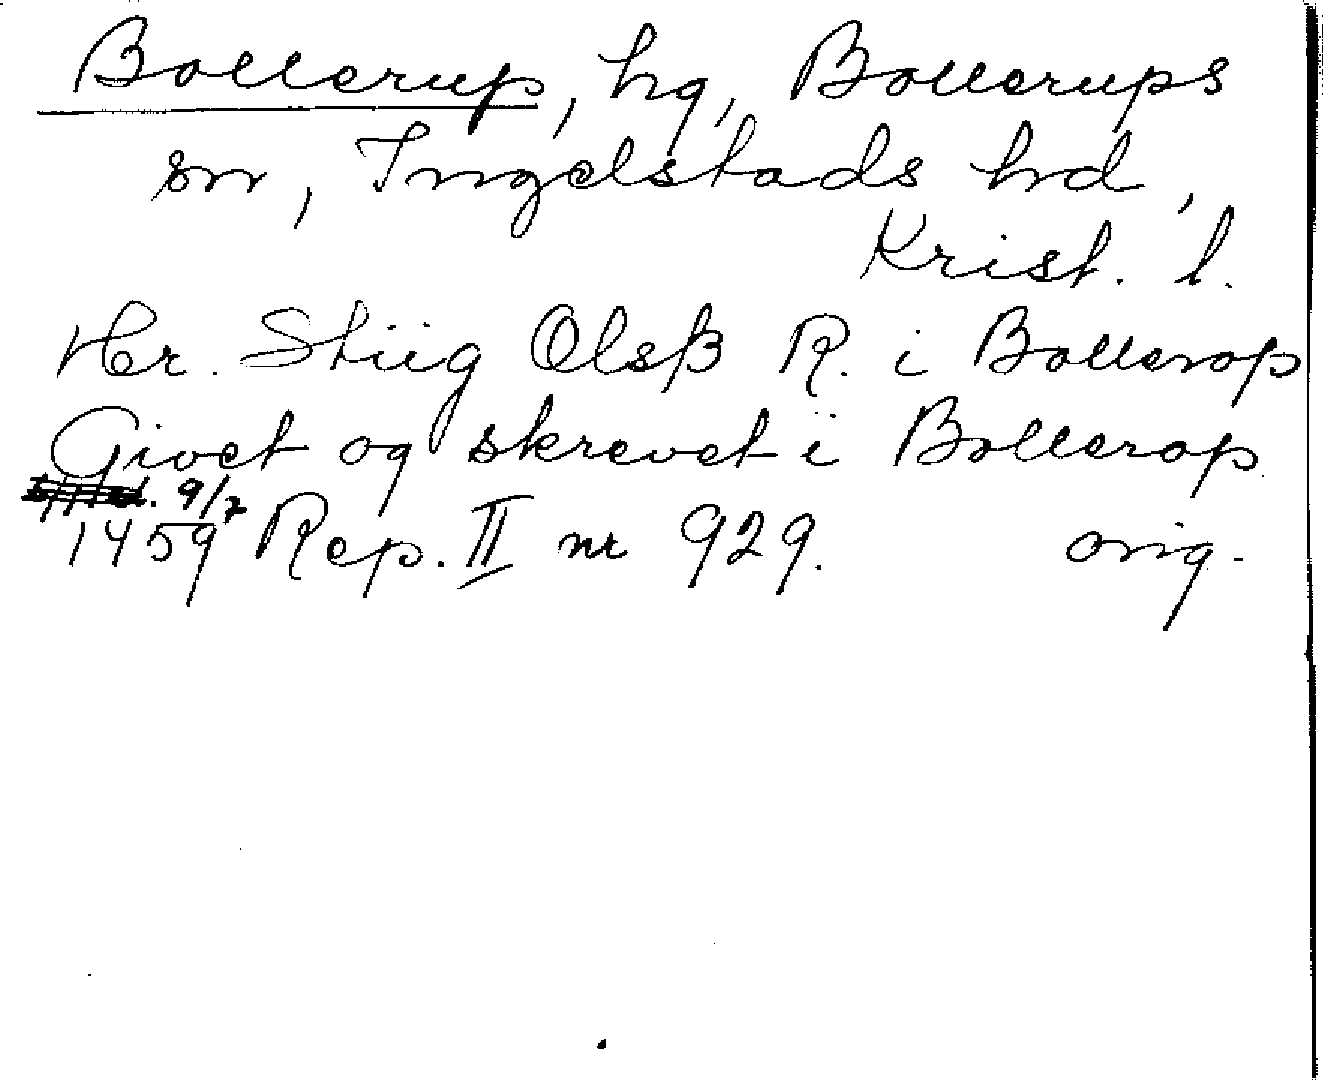 Bollerup, hg, Bollerups
sn, Ingelstads hd,
Krist. l.
Her. Stiig Olsß R. i Bollerop
Givet og skrevet i Bollerop
9/7
1459 Rep. II nr 929. orig.